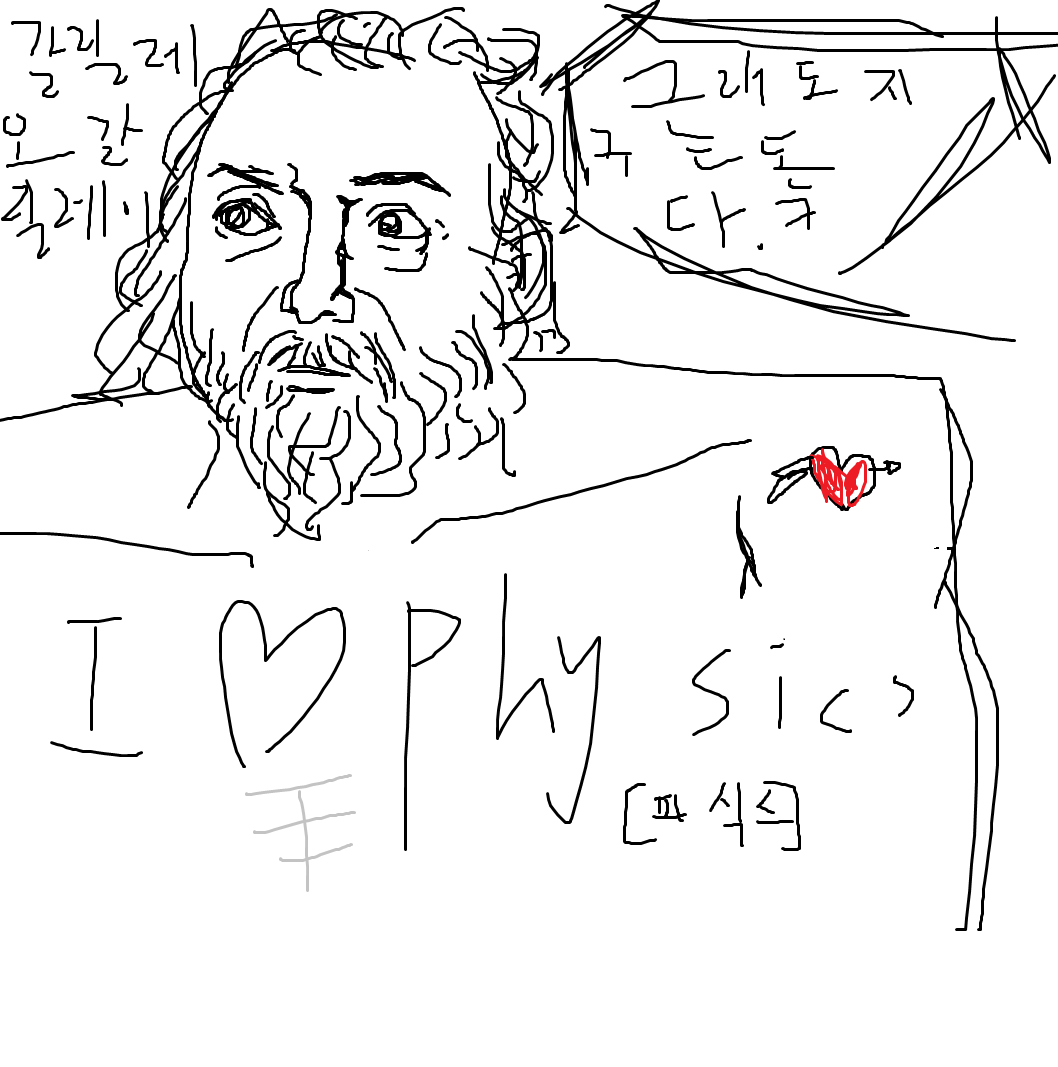 갈릴레
오 갈
릴레이
그래도 지
구는 도
다.
I ♡ physics
[파식스]